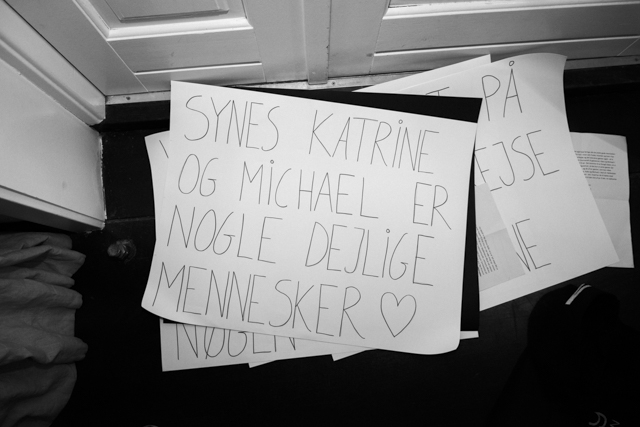 SYNES KATRINE
OG MICHAEL ER
NOGLE DEJLIGE
MENNESKER ♡
PÅ
EJSE
NE
NØGEN